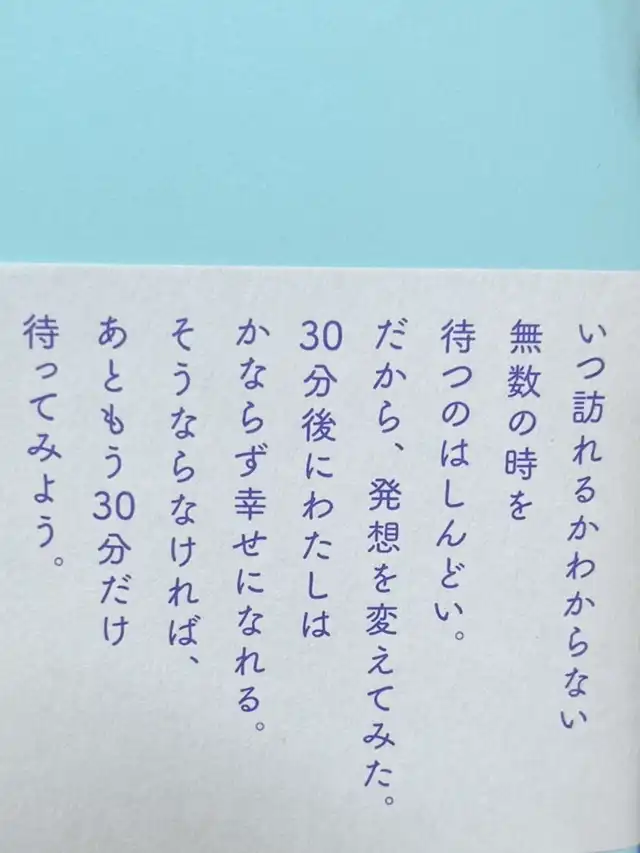 いつ訪れるかわからない
無数の時を
待つのはしんどい。
だから、発想を変えてみた。
30分後にわたしは
かならず幸せになれる。
そうならなければ、
あともう30分だけ
待ってみよう。